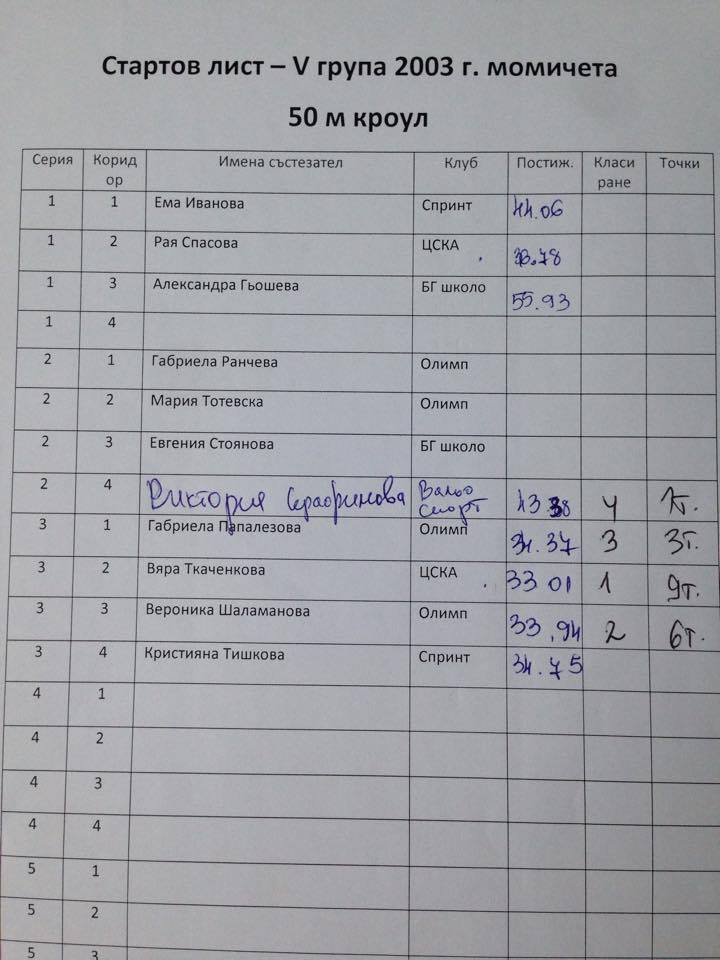 Стартов лист – V група 2003 г. момичета
50 м кроул
Серия Корид ор Имена състезател Клуб Постиж. Класи ране Точки
1 1 Ема Иванова Спринт 44.06
1 2 Рая Спасова ЦСКА .78
1 3 Александра Гьошева БГ школо 55.93
1 4
2 1 Габриела Ранчева Олимп
2 2 Мария Тотевска Олимп
2 3 Евгения Стоянова БГ школо
2 4 Виктория Серафимова Вальо Спорт 43.38 4 1т.
3 1 Габриела Папалезова Олимп 34.37 3 3т.
3 2 Вяра Ткаченкова ЦСКА 33 01 1 9т.
3 3 Вероника Шаламанова Олимп 33,94 2 6т.
3 4 Кристияна Тишкова Спринт 34.75
4 1
4 2
4 3
4 4
5 1
5 2
5 3